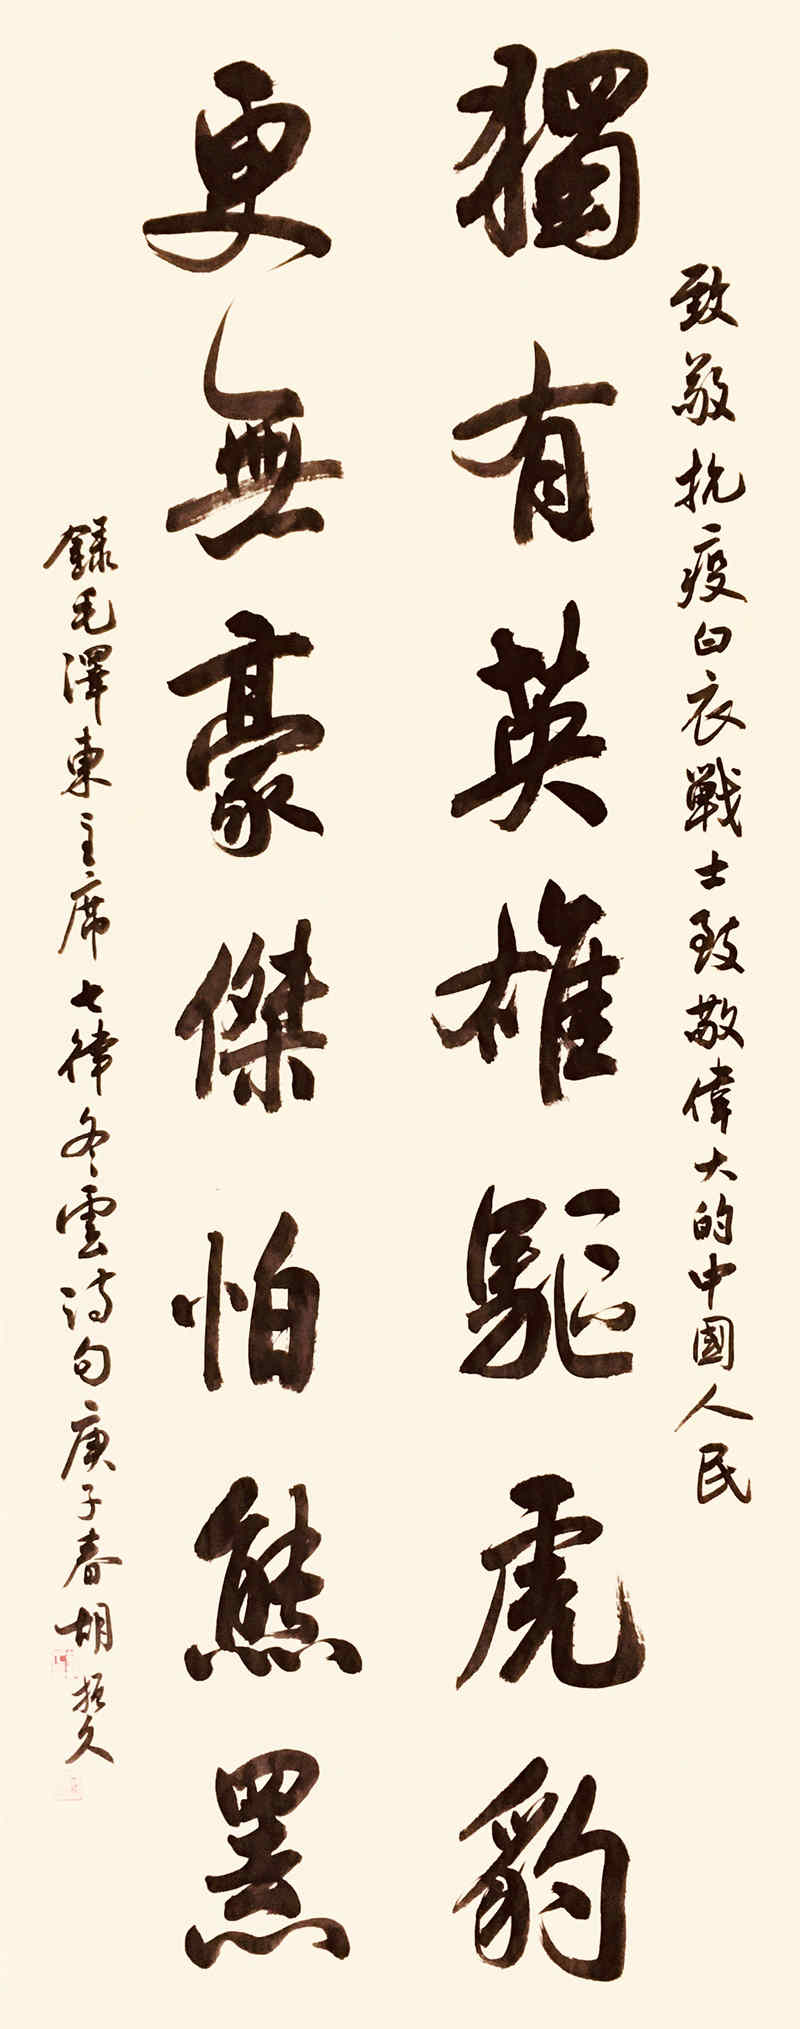 致敬抗疫白衣戰士致敬偉大的中國人民
獨有英雄驅虎豹
更無豪傑怕熊罴
錄毛澤東主席七律冬雲詩句庚子春胡振久